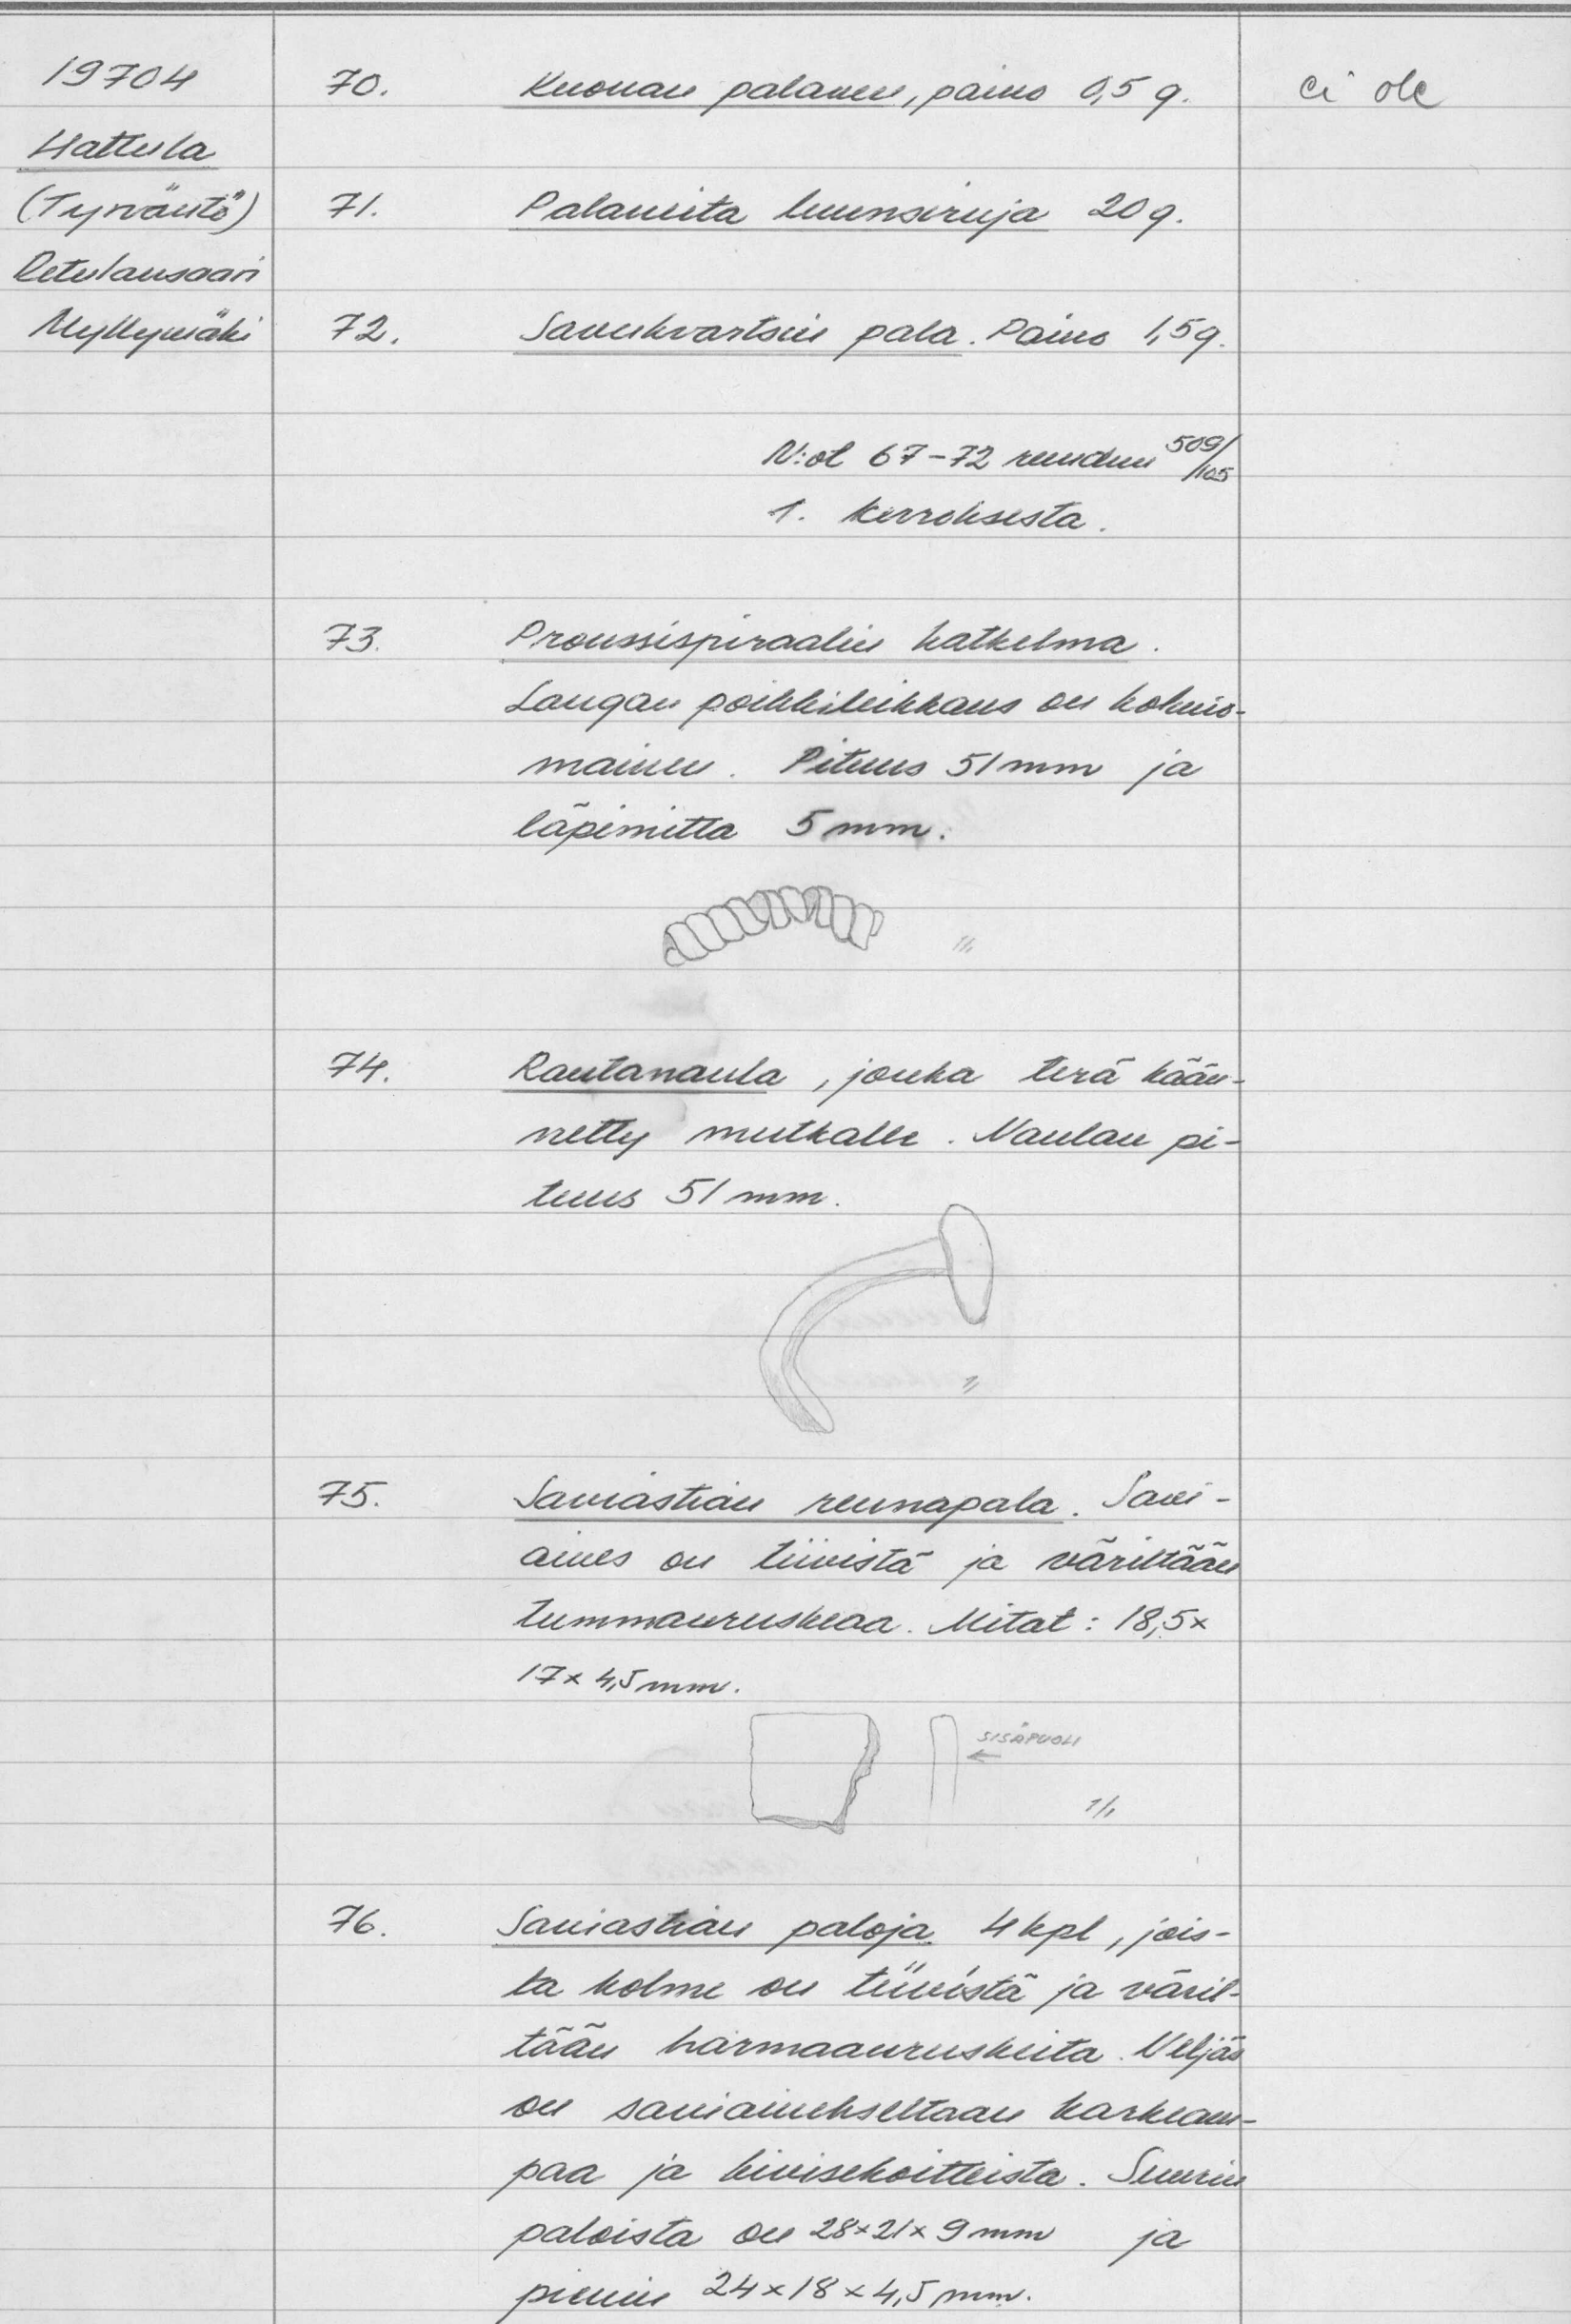 19704
Hattula
(Tyrväntö)
Retulansaari
Myllymäki
70. Kuonan palanen, paino 0,5 g. ei ole
71. Palaneita luunsiruja 20 g.
72. Savukvartsin pala. Paino 1,5 g.
N:ot 67-72 ruudun 509/105
1. kerroksesta.
73. Pronssispiraalin katkelma.
Langan poikkileikkaus on kolmio-
mainen. Pituus 51 mm ja
läpimitta 5 mm.
1/1
74. Rautanaula, jonka terä kään-
netty mutkalle. Naulan pi-
tuus 51 mm.
1/1
75. Saviastian reunapala. Savi-
aines on tiivistä ja väriltään
tummanruskeaa. Mitat: 18,5x
17x4,5 mm.
SISÄPUOLI
1/1
76. Saviastian paloja 4 kpl, jois-
ta kolme on tiivistä ja väril-
tään harmaanruskeita. Neljäs
on saviainekseltaan karkeam-
paa ja hiwisekoitteista. Suurin
paloista on 28x21x9 mm ja
pienin 24x18x4,5 mm.